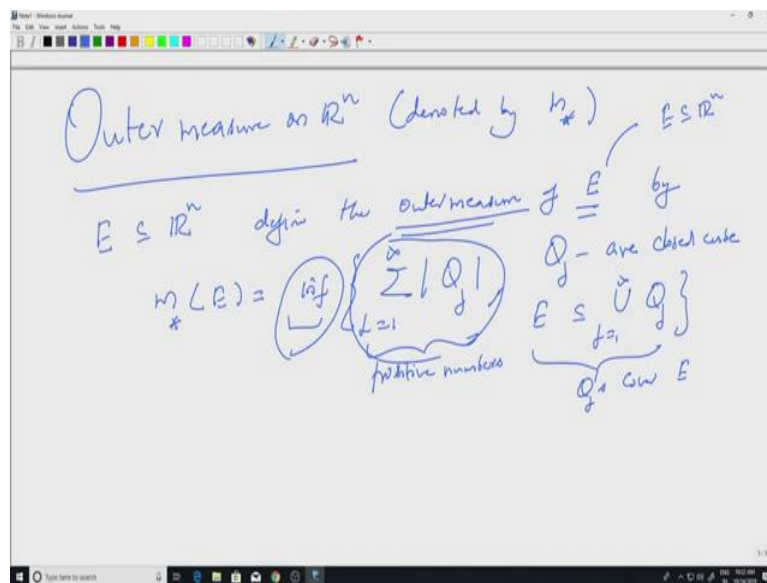 Note1 - Windows Journal
File Edit View Insert Actions Tools Help
Outer measure on ℝⁿ (denoted by m_*) E ⊆ ℝⁿ
E ⊆ ℝⁿ define the outer measure of E by
m_*(E) = inf { ∑_{j=1}^{∞} |Q_j| , Q_j - are closed cube
E ⊆ ⋃_{j=1}^{∞} Q_j }
positive numbers
Q_j's cover E
Type here to search